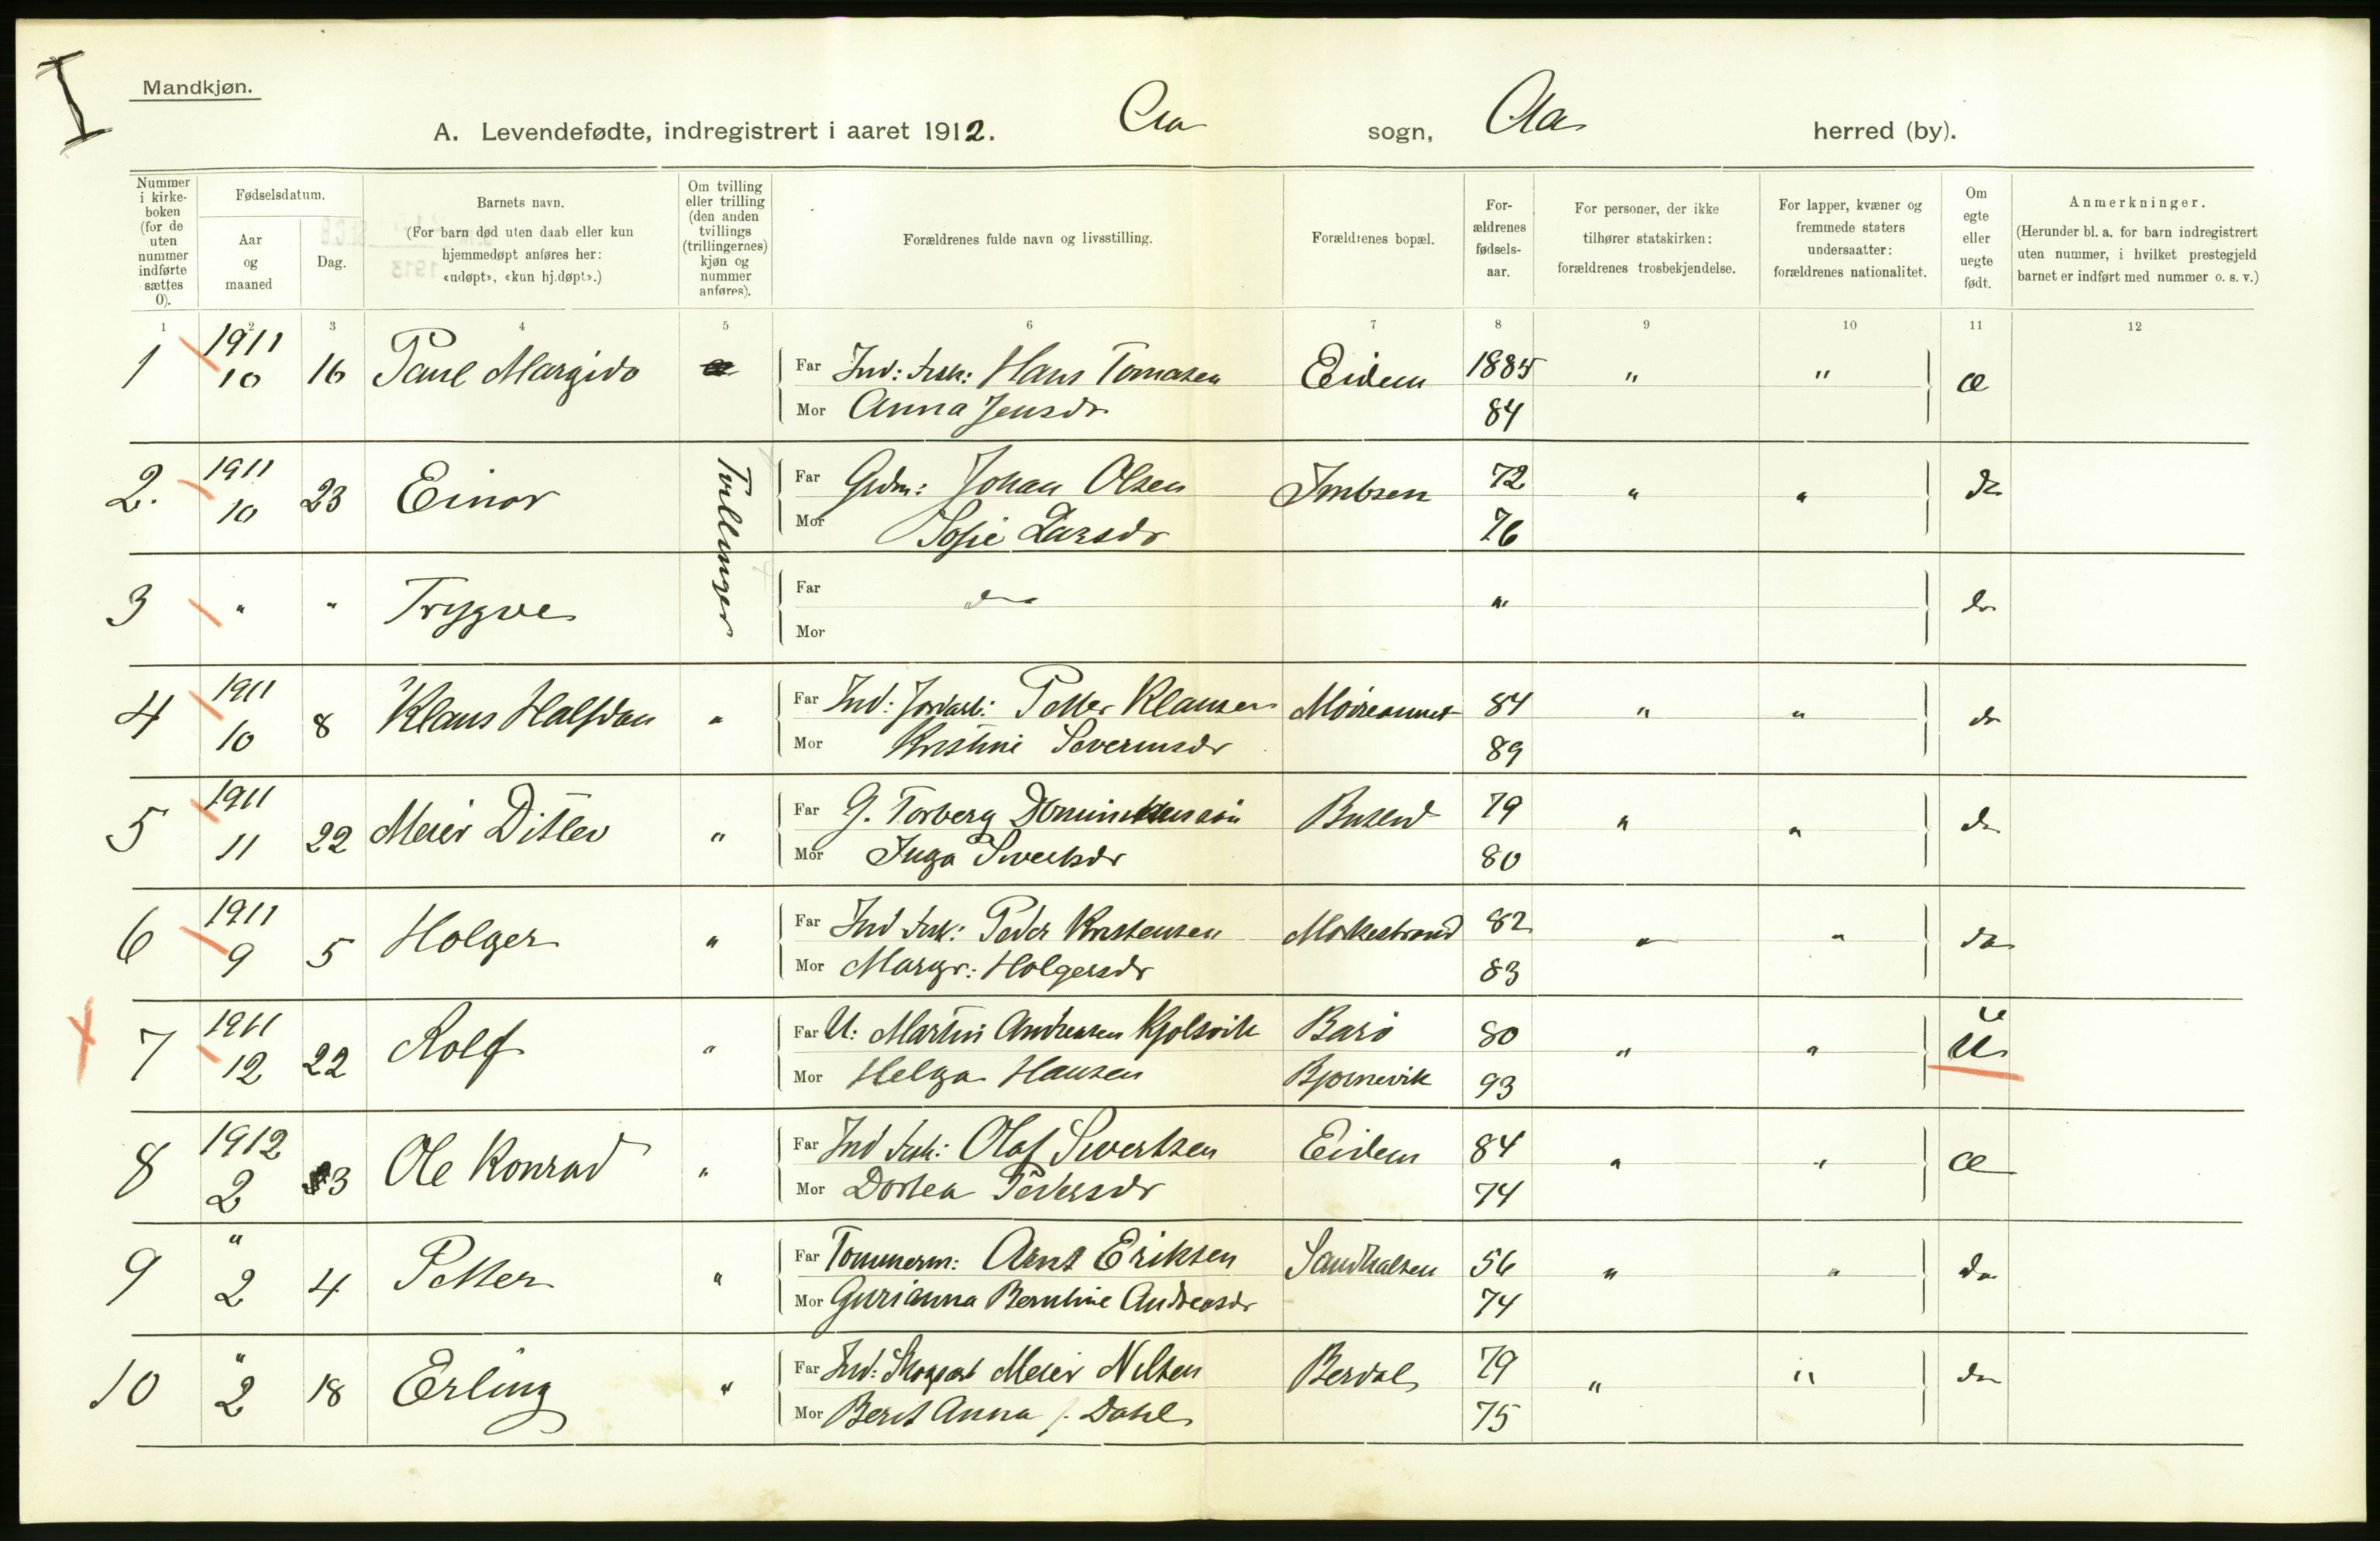 I
Mandkjøn.
A. Levendefødte, indregistrert i aaret 1912. Aa sogn, Aa herred (by).
Nummer i kirke-boken (for de uten nummer indførte sættes 0).
Fødselsdatum.
Aar og maaned
Dag.
Barnets navn.
(For barn død uten daab eller kun hjemmedøpt anføres her: «udøpt», «kun hj.døpt».)
Om tvilling eller trilling (den anden tvillings (trillingernes) kjøn og nummer anføres).
Forældrenes fulde navn og livsstilling.
Forældrenes bopæl.
For-ældrenes fødsels-aar.
For personer, der ikke tilhører statskirken: forældrenes trosbekjendelse.
For lapper, kvæner og fremmede staters undersaatter: forældrenes nationalitet.
Om egte eller uegte født.
Anmerkninger.
(Herunder bl. a. for barn indregistrert uten nummer, i hvilket prestegjeld barnet er indført med nummer o. s. v.)
1 2 3 4 5 6 7 8 9 10 11 12
1 1911 10 16 Paul Margido Far Ind: fisk: Hans Tomasen Eidem 1885 " " æ
Mor Anna Jensdr 84
2. 1911 10 23 Einar Tvillinger Far Grdm: Johan Olsen 72 " " do
Mor Sofie Larsdr 76
3 " " Trygve Far do " do
Mor
4 1911 10 8 Klaus Halfdan " Far Ind: Petter Klausen 84 " " do
Mor Kristine Severinsdr 89
5 1911 11 22 Meier Ditlev " Far G. Torberg 79 " " do
Mor Inga Sivertsdr 80
6 1911 9 5 Holger " Far Ind fisk: Peder Kristensen 82 " " do
Mor Margr: Holgersdr 83
7 1911 12 22 Rolf " Far U: Martin Andreasen Kjølsvik Barø 80 " " U
Mor Helga Hansen Bjørnevik 93
8 1912 2 3 Ole Konrad " Far Ind fisk: Olaf Sivertsen Eidem 84 " " æ
Mor Dortea Pedersdr 74
9 " 2 4 Petter " Far Tømmerm: Arnt Eriksen Sandhalsen 56 " " do
Mor Gurianna Berntine Andreasdr 74
10 " 2 18 Erling " Far Ind: Meier Nilsen Berdal 79 " " do
Mor Berit Anna f. Dahl 75